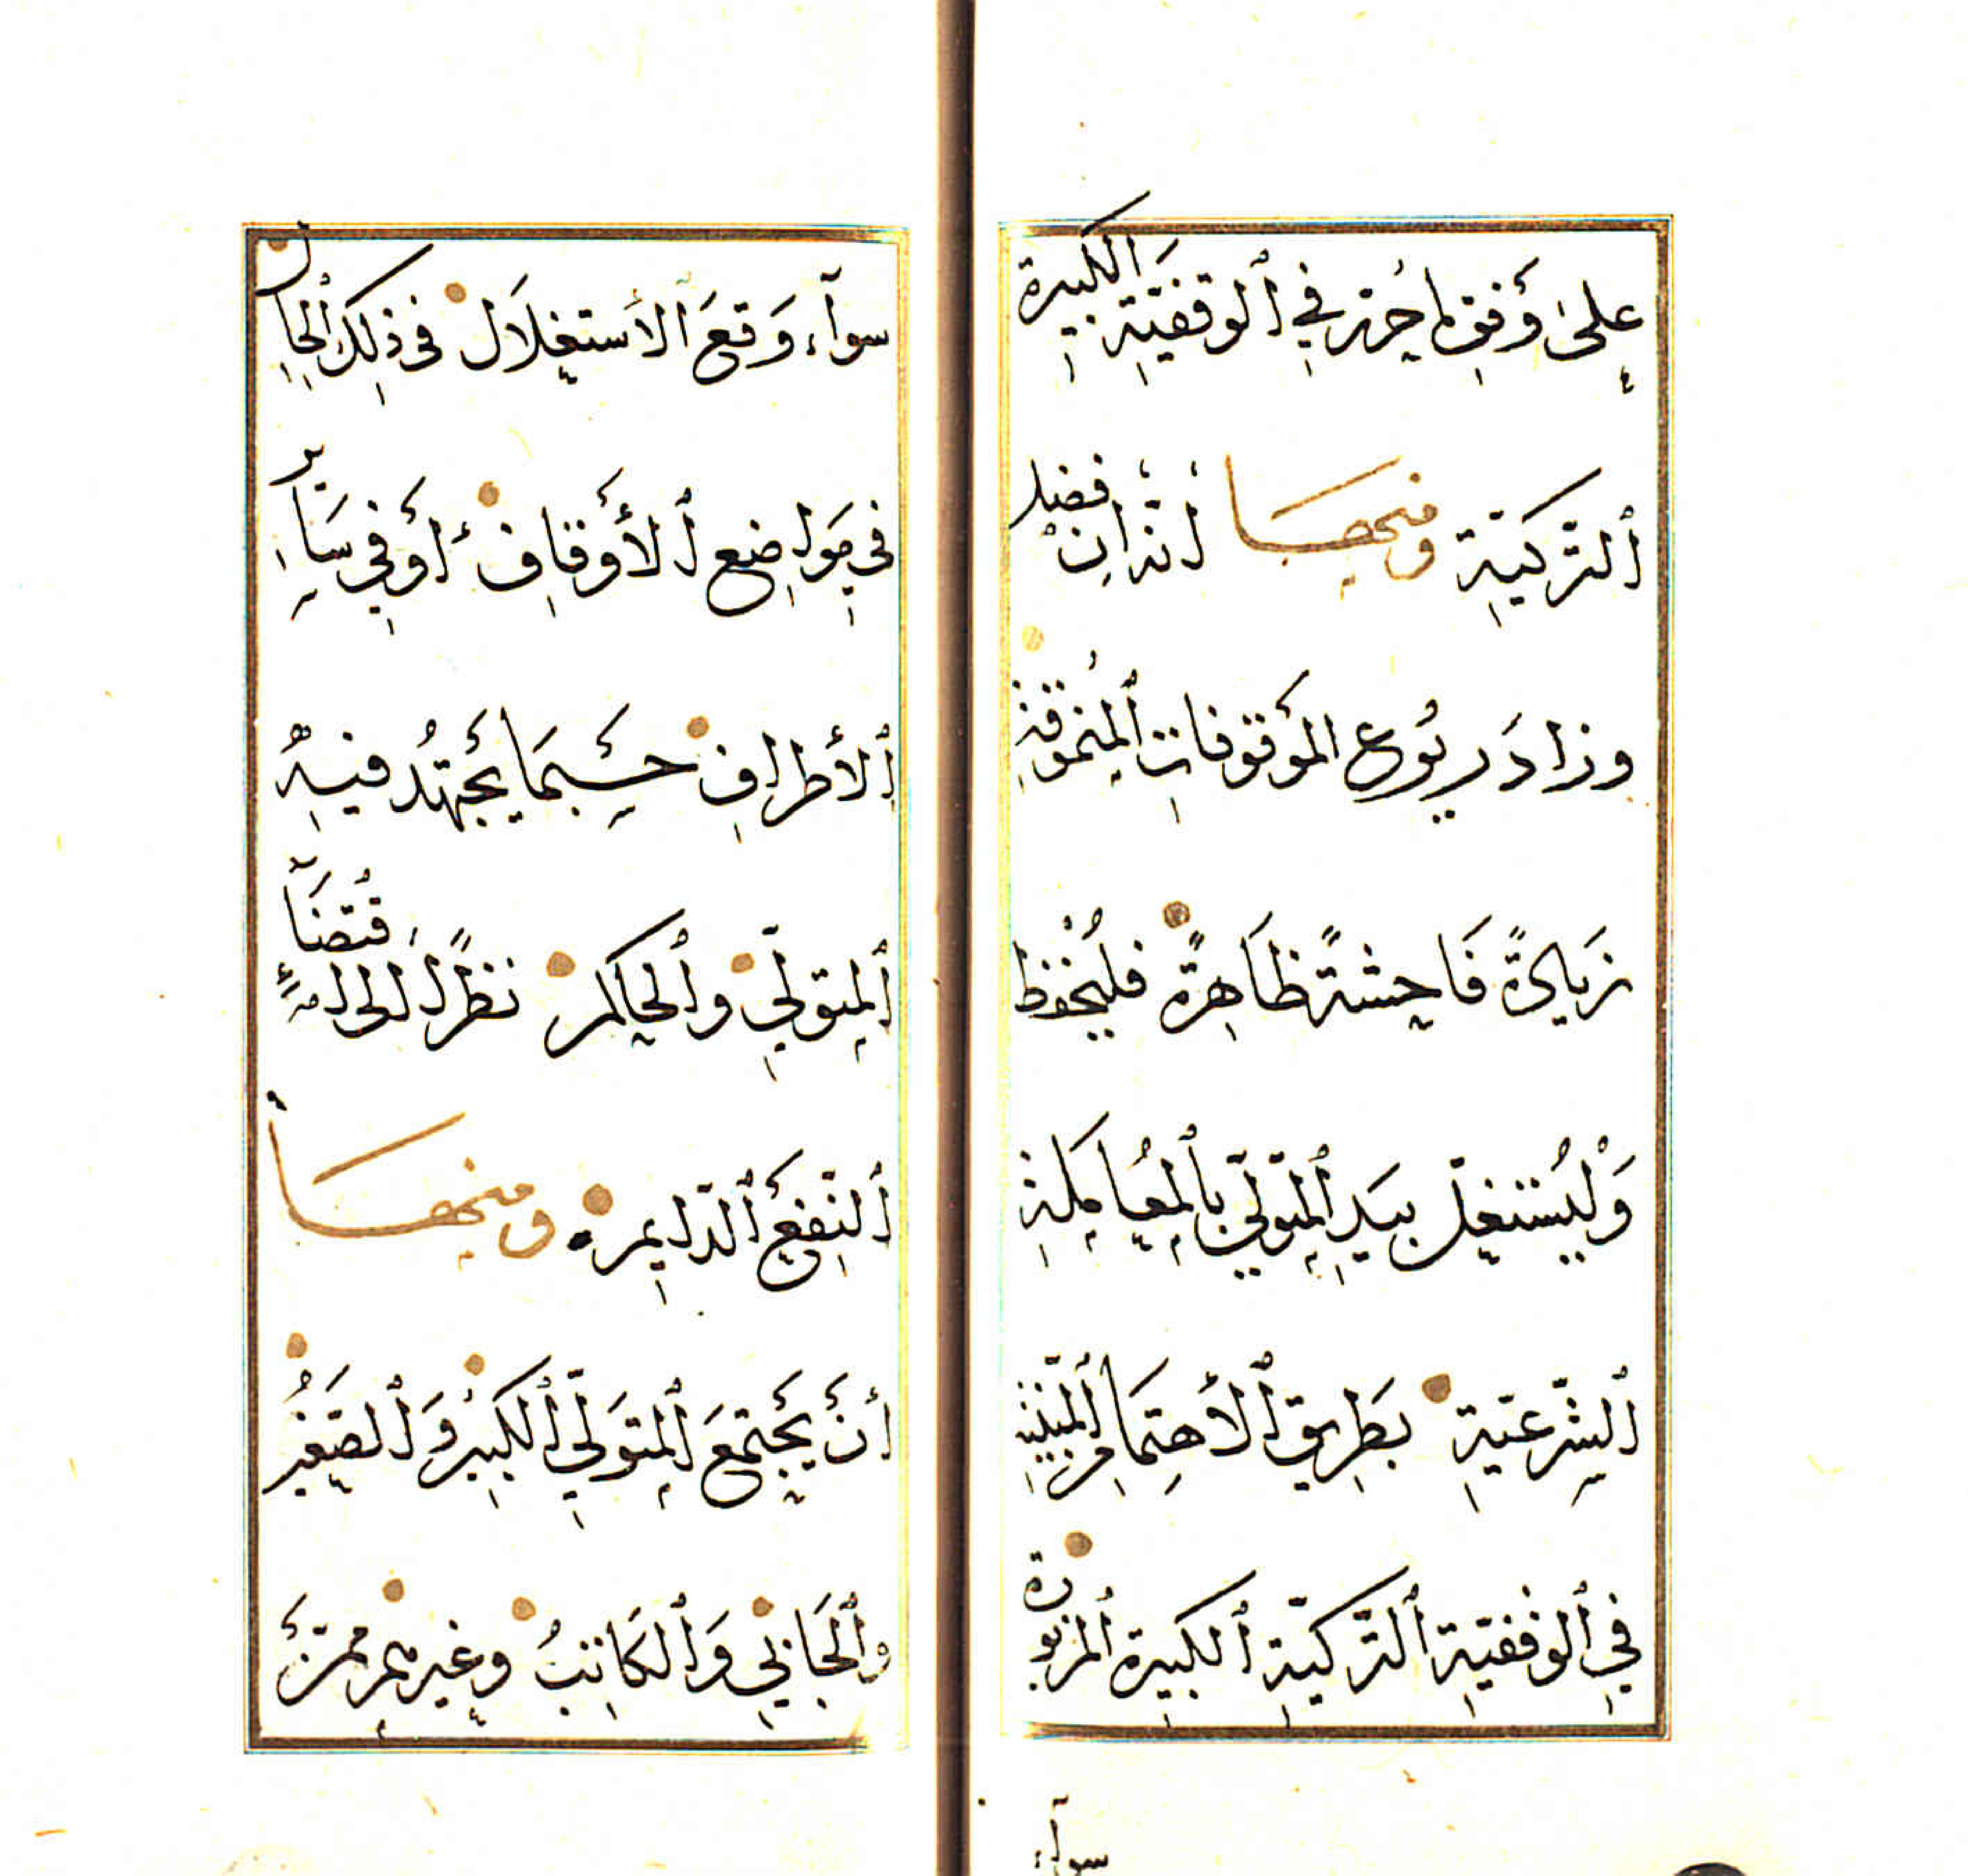 على وفق ما حرر في ٱلوقفيّة الكبيرة
ٱلتّركيّة ومنها أنّه إن فضل
وزاد ريوع الموقوفات
زيادةً فاحشةً ظاهرةً فليحفظ
وَلْيُستغلّ بيد ٱلمتولّي بٱلمعاملة
ٱلشّرعيّة بطريق ٱلاهتمام ٱلمبيّن
في ٱلوقفيّة ٱلتّركيّة ٱلكبيرة ٱلمزبورة
سوآء
سوآء وَقعَ ٱلاستغلَال فى ذلك ٱلحال
فى مواضع ٱلأوقاف أو في سائر
ٱلأطراف حسبما يجتهدُ فيه
ٱلمتولّي وٱلحاكم نظرًا إلى ٱقتضآء
ٱلنّفع ٱلدّايم ومنها
أن يجتمعَ ٱلمتولّي ٱلكبيرُ وَٱلصّغيرُ
وٱلجَابي وَٱلكَاتبُ وغيرهم ممّن